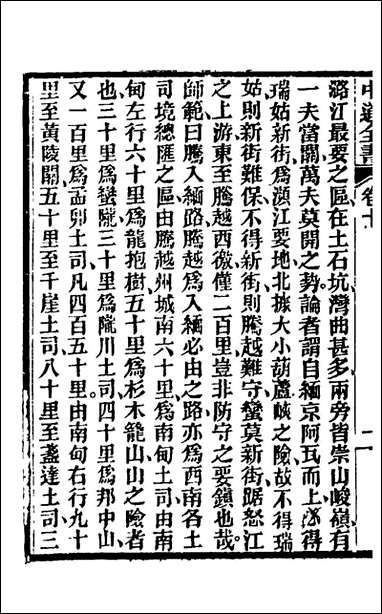 潞江最要之區在土石坑灣曲甚多兩旁皆崇山峻嶺有
一夫當關萬夫莫開之勢論者謂自緬京阿瓦而上不得
瑞姑新街爲瀕江要地北據大小葫蘆峽之險故不得瑞
姑則新街難保不得新街則騰越難守蠻莫新街踞怒江
之上游東至騰越西徼僅二百里豈非防守之要鎮也哉
師範曰騰入緬路騰越爲入緬必由之路亦爲西南各土
司境總匯之區由騰越州城南六十里爲南甸土司由南
甸左行六十里爲龍抱樹五十里爲杉木籠山山之險者
也三十里爲蠻隴三十里爲隴川土司四十里爲邦中山
又一百里爲孟卯土司凡四百五十里由南甸右行九十
里至黃陵關五十里至千崖土司八十里至盞達土司三
卷十
二